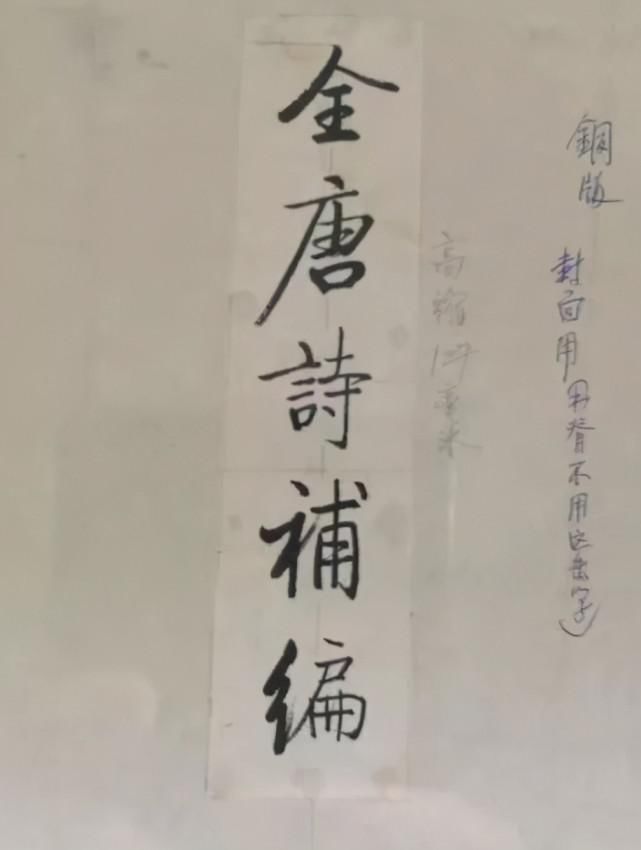 銅版
封面用 脊不用这套字）
高縮 厘米
全唐詩補編